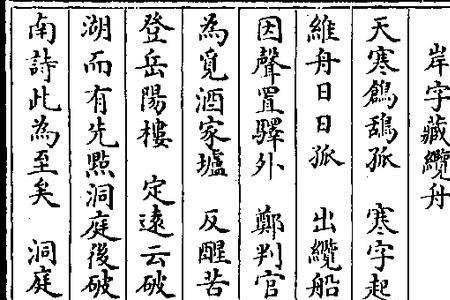 岸字藏纜舟
天寒鶬鴰孤　寒字起
維舟日日孤　出纜船
因聲置驛外　鄭判官
為覓酒家壚　反醒苦
登岳陽樓　定遠云破
湖而有先點洞庭後破
南詩此為至矣　洞庭